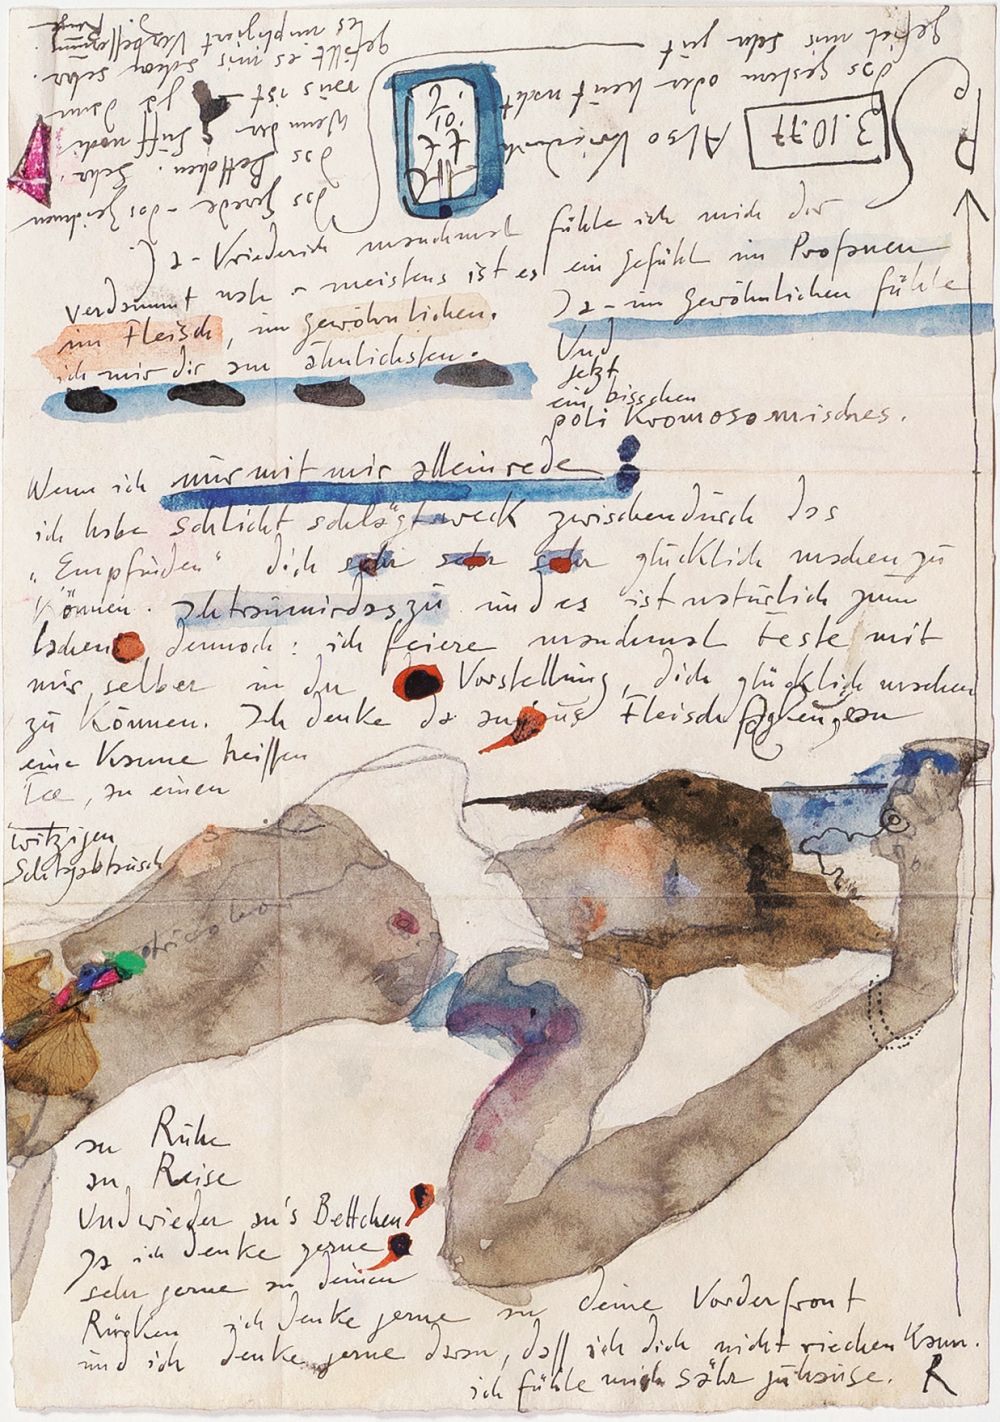 3.10.77
Also Vriederich
das gestern oder heut nacht
gefiel mir sehr gut
das Gerede - das Zeichnen
das Bettchen. Sehr.
Wenn der Suff noch
aus ist - ja dann
gefällt es mir schon sehr.
es impliziert Verbesserung.
Ja - Vriederich manchmal fühle ich mich dir
verdammt nah - meistens ist es ein Gefühl im Profanen
im Fleisch, im Gewöhnlichen. Ja - im Gewöhnlichen fühle
ich mir dir am ähnlichsten.
Und
jetzt
ein bisschen
poli Kromosomisches.
Wenn ich nur mit mir allein rede
ich habe schlicht schlägtweck zwischendurch das
"Empfinden" dich sehr sehr sehr glücklich machen zu
können. und es ist natürlich zum
lachen dennoch: ich feiere manchmal Feste mit
mir selber in der Vorstellung, dich glücklich machen
zu können. Ich denke da an Fleisch an
eine Kanne heissen
Tee, an einen
witzigen
an Ruhe
an Reise
Und wieder an's Bettchen
Ja ich denke gerne
sehr gerne an deinen
Rücken ich denke gerne an deine Vorderfront
und ich denke gerne daran, daß ich dich nicht riechen kann.
ich fühle mich sähr zuhause. R